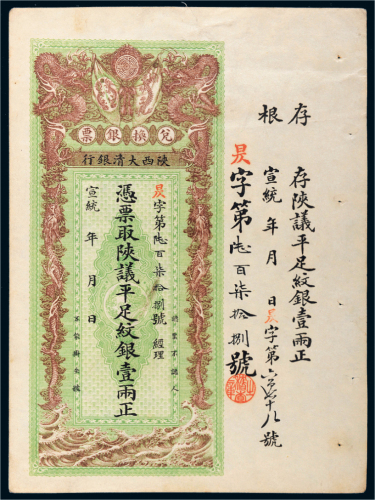 存根
存陝議平足紋銀壹兩正
宣統 年 月 日昃字第六百七十八號
昃字第陸百柒拾捌號
兌換銀票
陝西大清銀行
昃字第陸百柒拾捌號 經理
憑票取陝議平足紋銀壹兩正
宣統 年 月 日
認票不認人